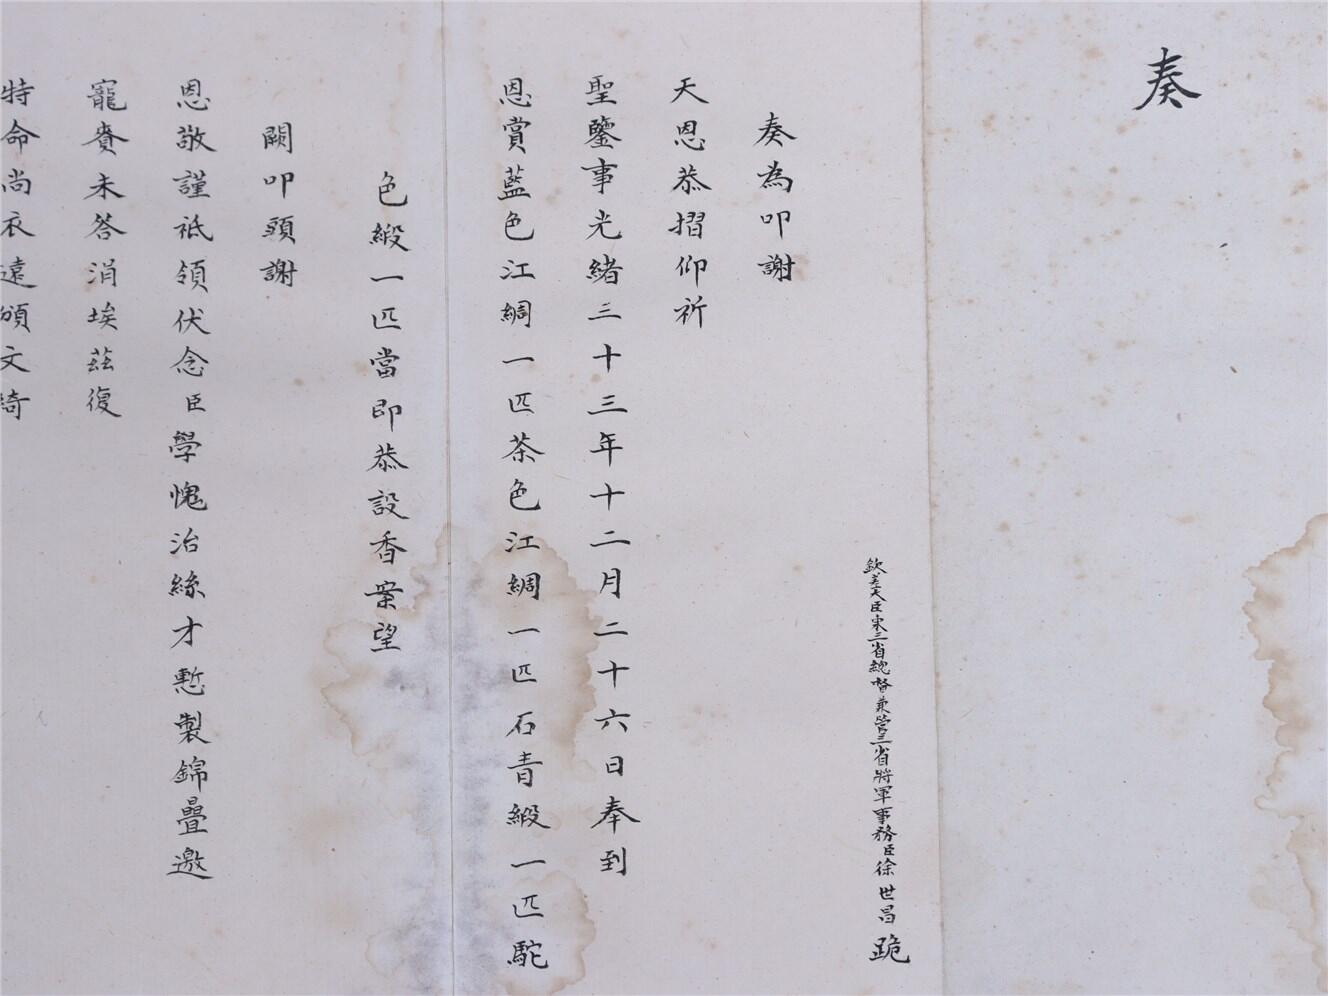 奏
欽差大臣東三省總督兼管三省將軍事務臣徐世昌跪
奏為叩謝
天恩恭摺仰祈
聖鑒事光緒三十三年十二月二十六日奉到
恩賞藍色江綢一匹茶色江綢一匹石青緞一匹駝
色緞一匹當即恭設香案望
闕叩頭謝
恩敬謹祗領伏念臣學愧治絲才慙製錦疊邀
寵賚未答涓埃茲復
特命尚衣遠頒文綺